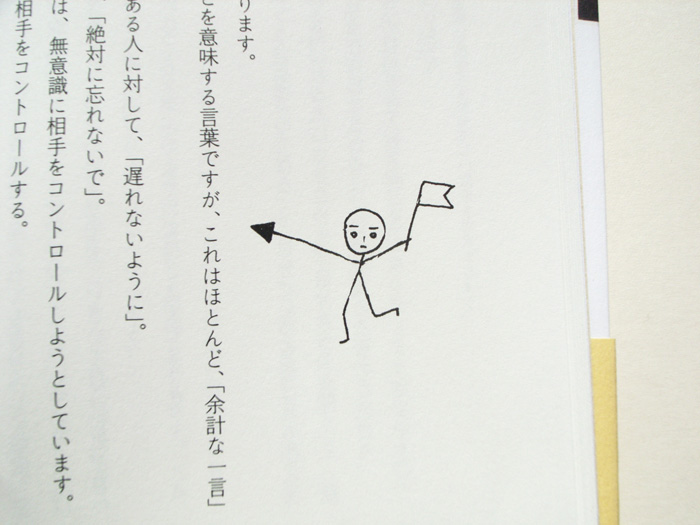 ります。
とを意味する言葉ですが、これはほとんど、「余計な一言」
ある人に対して、「遅れないように」。
「絶対に忘れないで」。
は、無意識に相手をコントロールしようとしています。
相手をコントロールする。